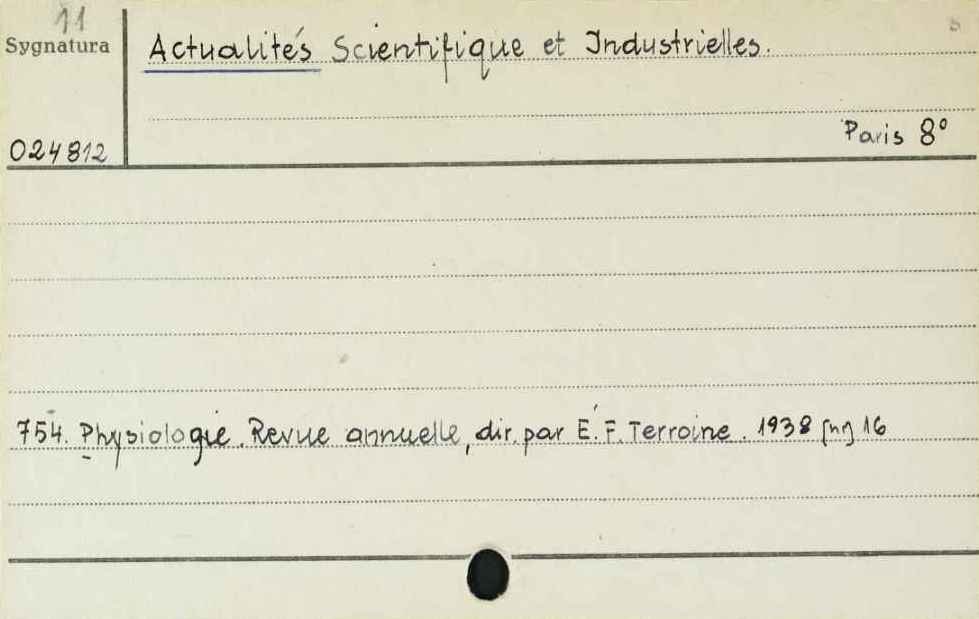 11
Sygnatura
Actualités Scientifique et Industrielles.
Paris 8°
024812
754. Physiologie. Revue annuelle, dir. par É. F. Terroine. 1938 [nr] 16